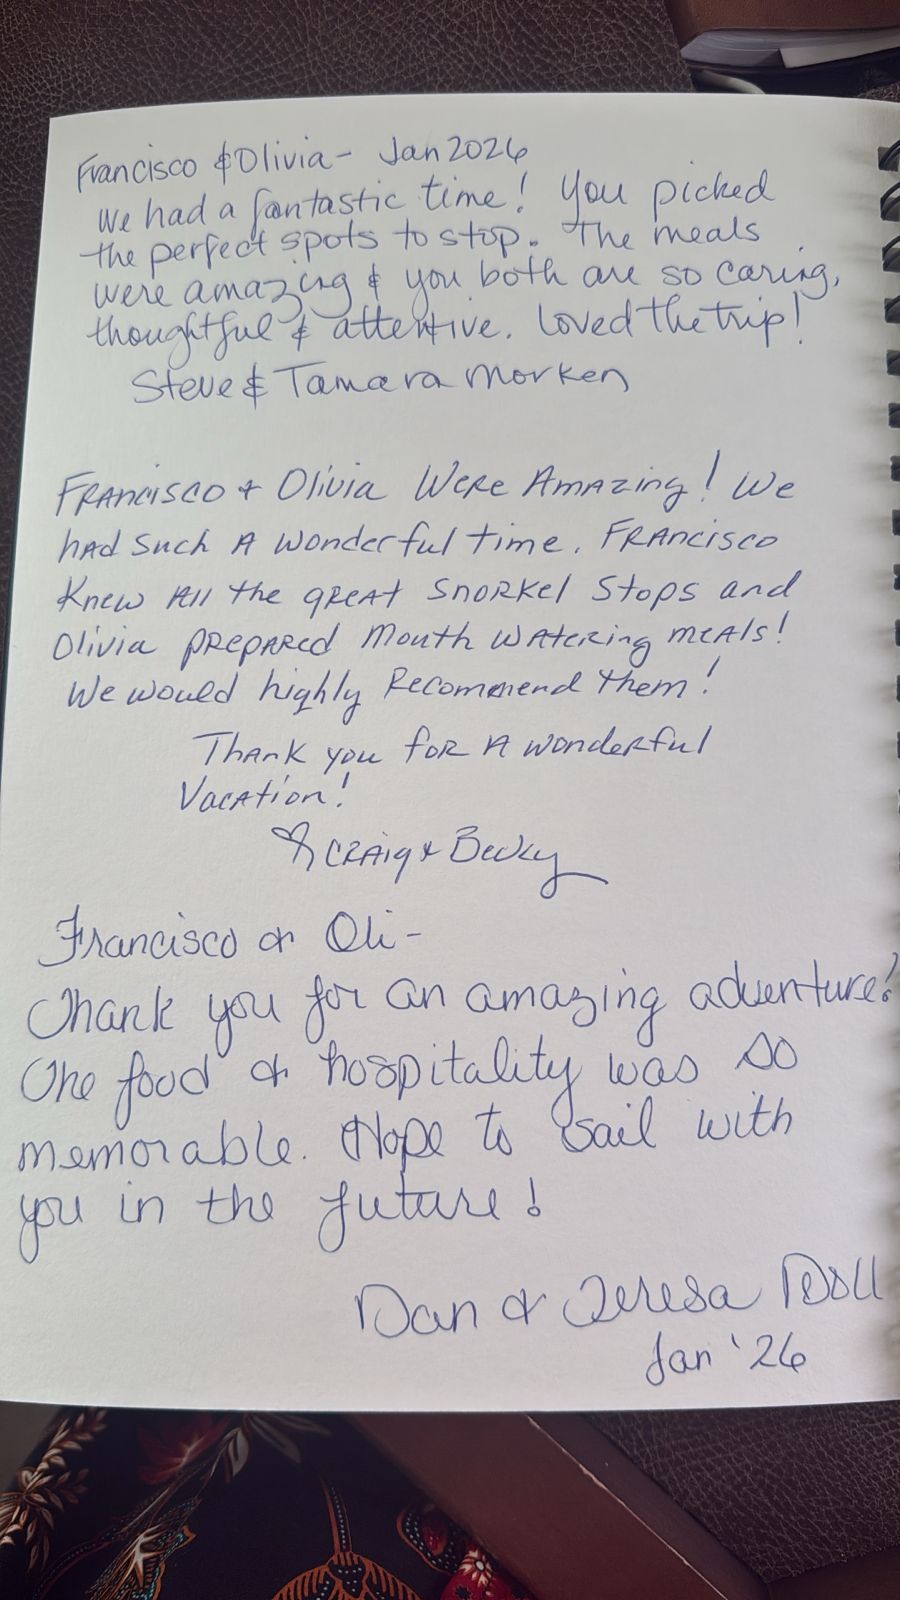 Francisco & Olivia - Jan 2026
We had a fantastic time! You picked
the perfect spots to stop. The meals
were amazing & you both are so caring,
thoughtful & attentive. Loved the trip!
Steve & Tamara Morken
Francisco + Olivia Were Amazing! We
had such a wonderful time. Francisco
Knew all the great snorkel stops and
Olivia prepared mouth watering meals!
We would highly recommend them!
Thank you for a wonderful
vacation!
♡ Craig + Becky
Francisco & Oli-
Thank you for an amazing adventure!
The food & hospitality was so
memorable. Hope to sail with
you in the future!
Dan & Teresa Doll
Jan '26